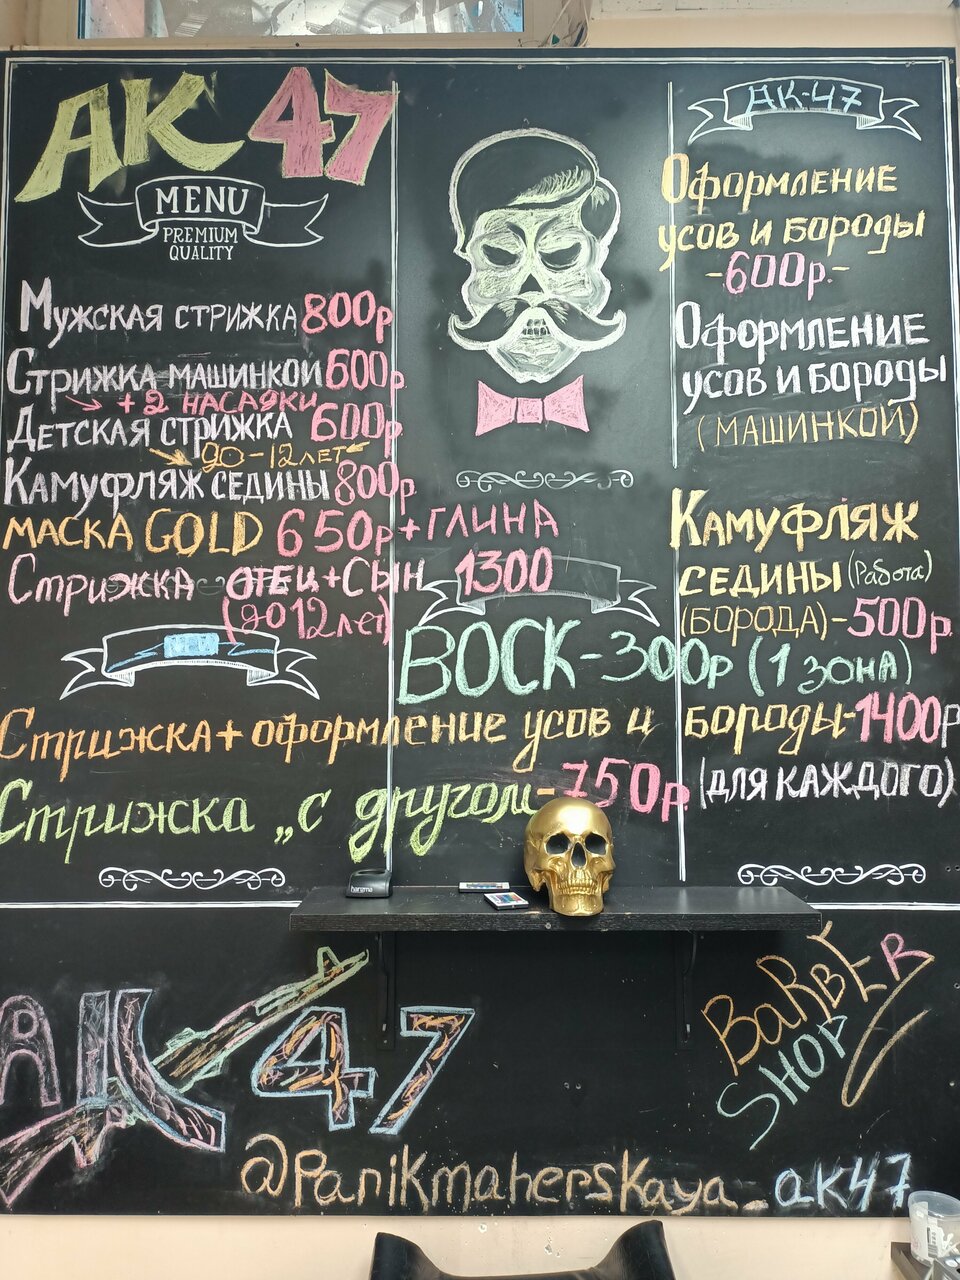 АК 47
MENU
PREMIUM
QUALITY
Мужская стрижка 800р
Стрижка машинкой 600р
→ + 2 насадки
Детская стрижка 600р
до - 12 лет
Камуфляж седины 800р
маска GOLD 650р + глина
Стрижка отец + Сын 1300
(до 12 лет)
АК-47
Оформление
усов и бороды
- 600р. -
Оформление
усов и бороды
(машинкой)
Камуфляж
седины (Работа)
(борода) - 500р
ВОСК - 300р (1 зона)
Стрижка + оформление усов и бороды - 1400р
Стрижка „с другом - 750р (для каждого)
harizma
АК 47
BARBER
SHOP
@Parikmaherskaya_ak47